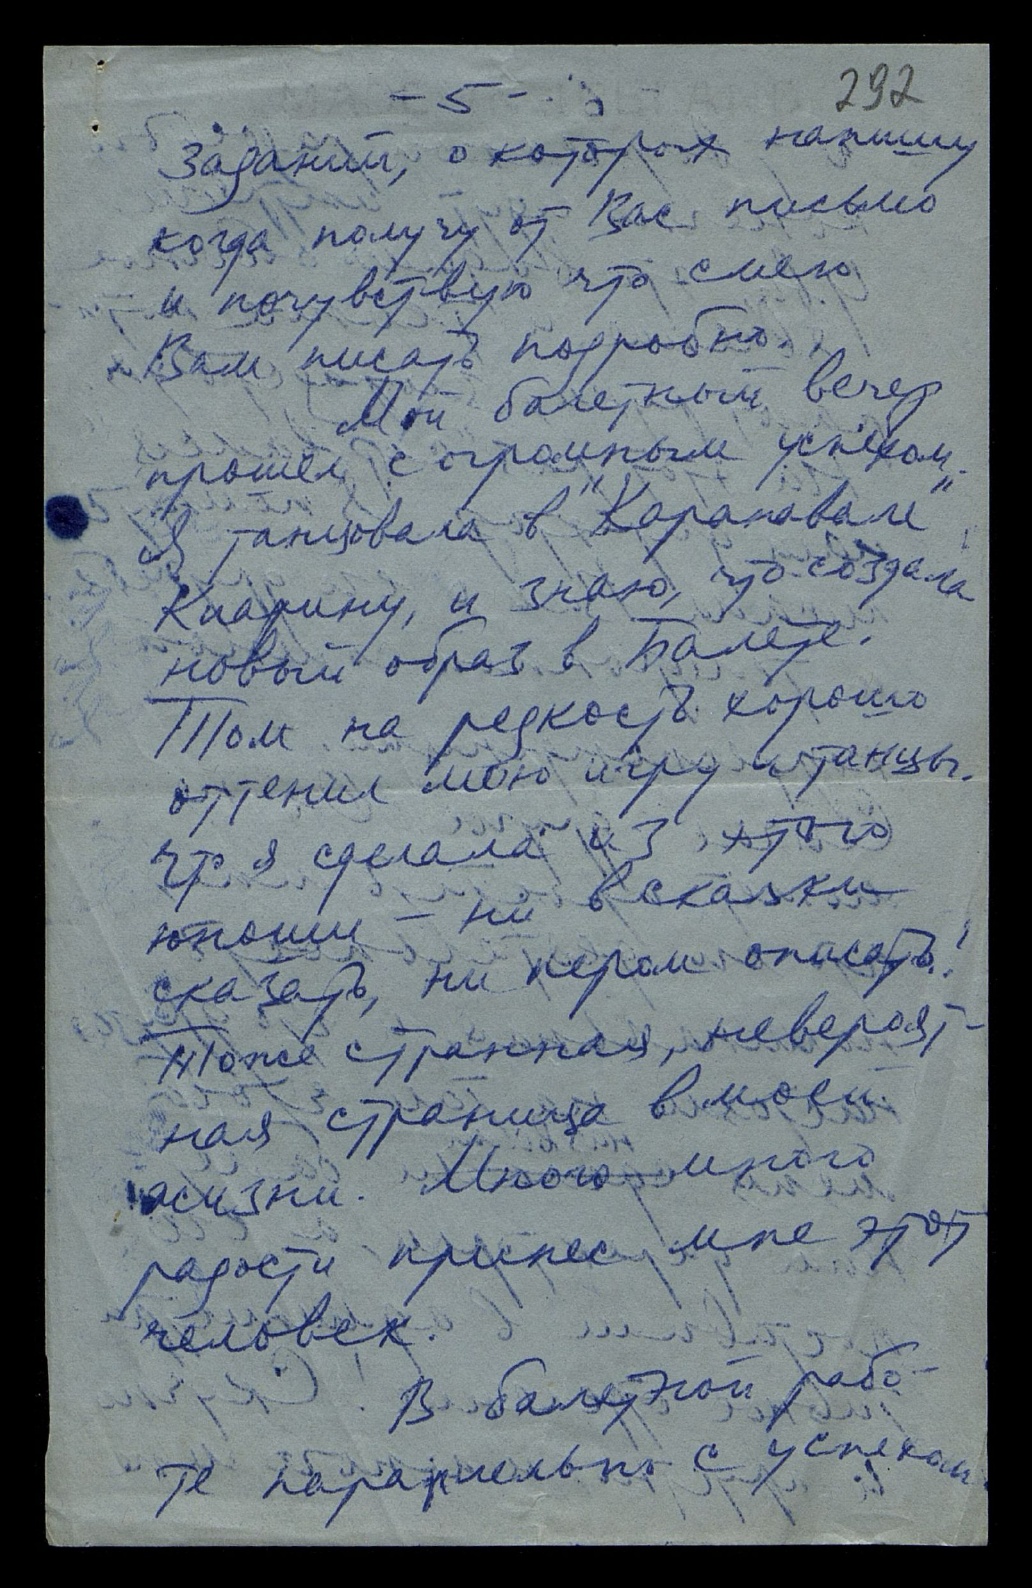 292
- 5 -
заданий, о которых напишу
когда получу от Вас письмо
и почувствую что смею
Вам писать подробно.
Мой балетный вечер
прошел с огромным успехом.
Я танцовала в "Каранавале"
Киарину, и знаю, что создала
новый образ в Балете.
Том на редкость хорошо
оттенил мою игру и танцы.
Что я сделала из этого
юноши – ни в сказки
сказать, ни пером описать!
Тоже странная, невероят-
ная страница в моей
жизни. Много много
радости принес мне этот
человек.
В балетной рабо-
те паралельно с успехом